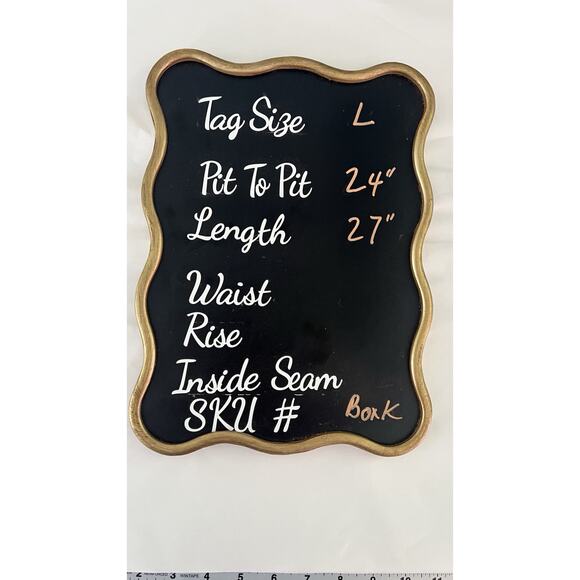 Tag Size L
Pit To Pit 24"
Length 27"
Waist
Rise
Inside Seam
SKU # Box K
2 REINFORCED 3 WINTAPE 4 5 6 7 8 9 10 11